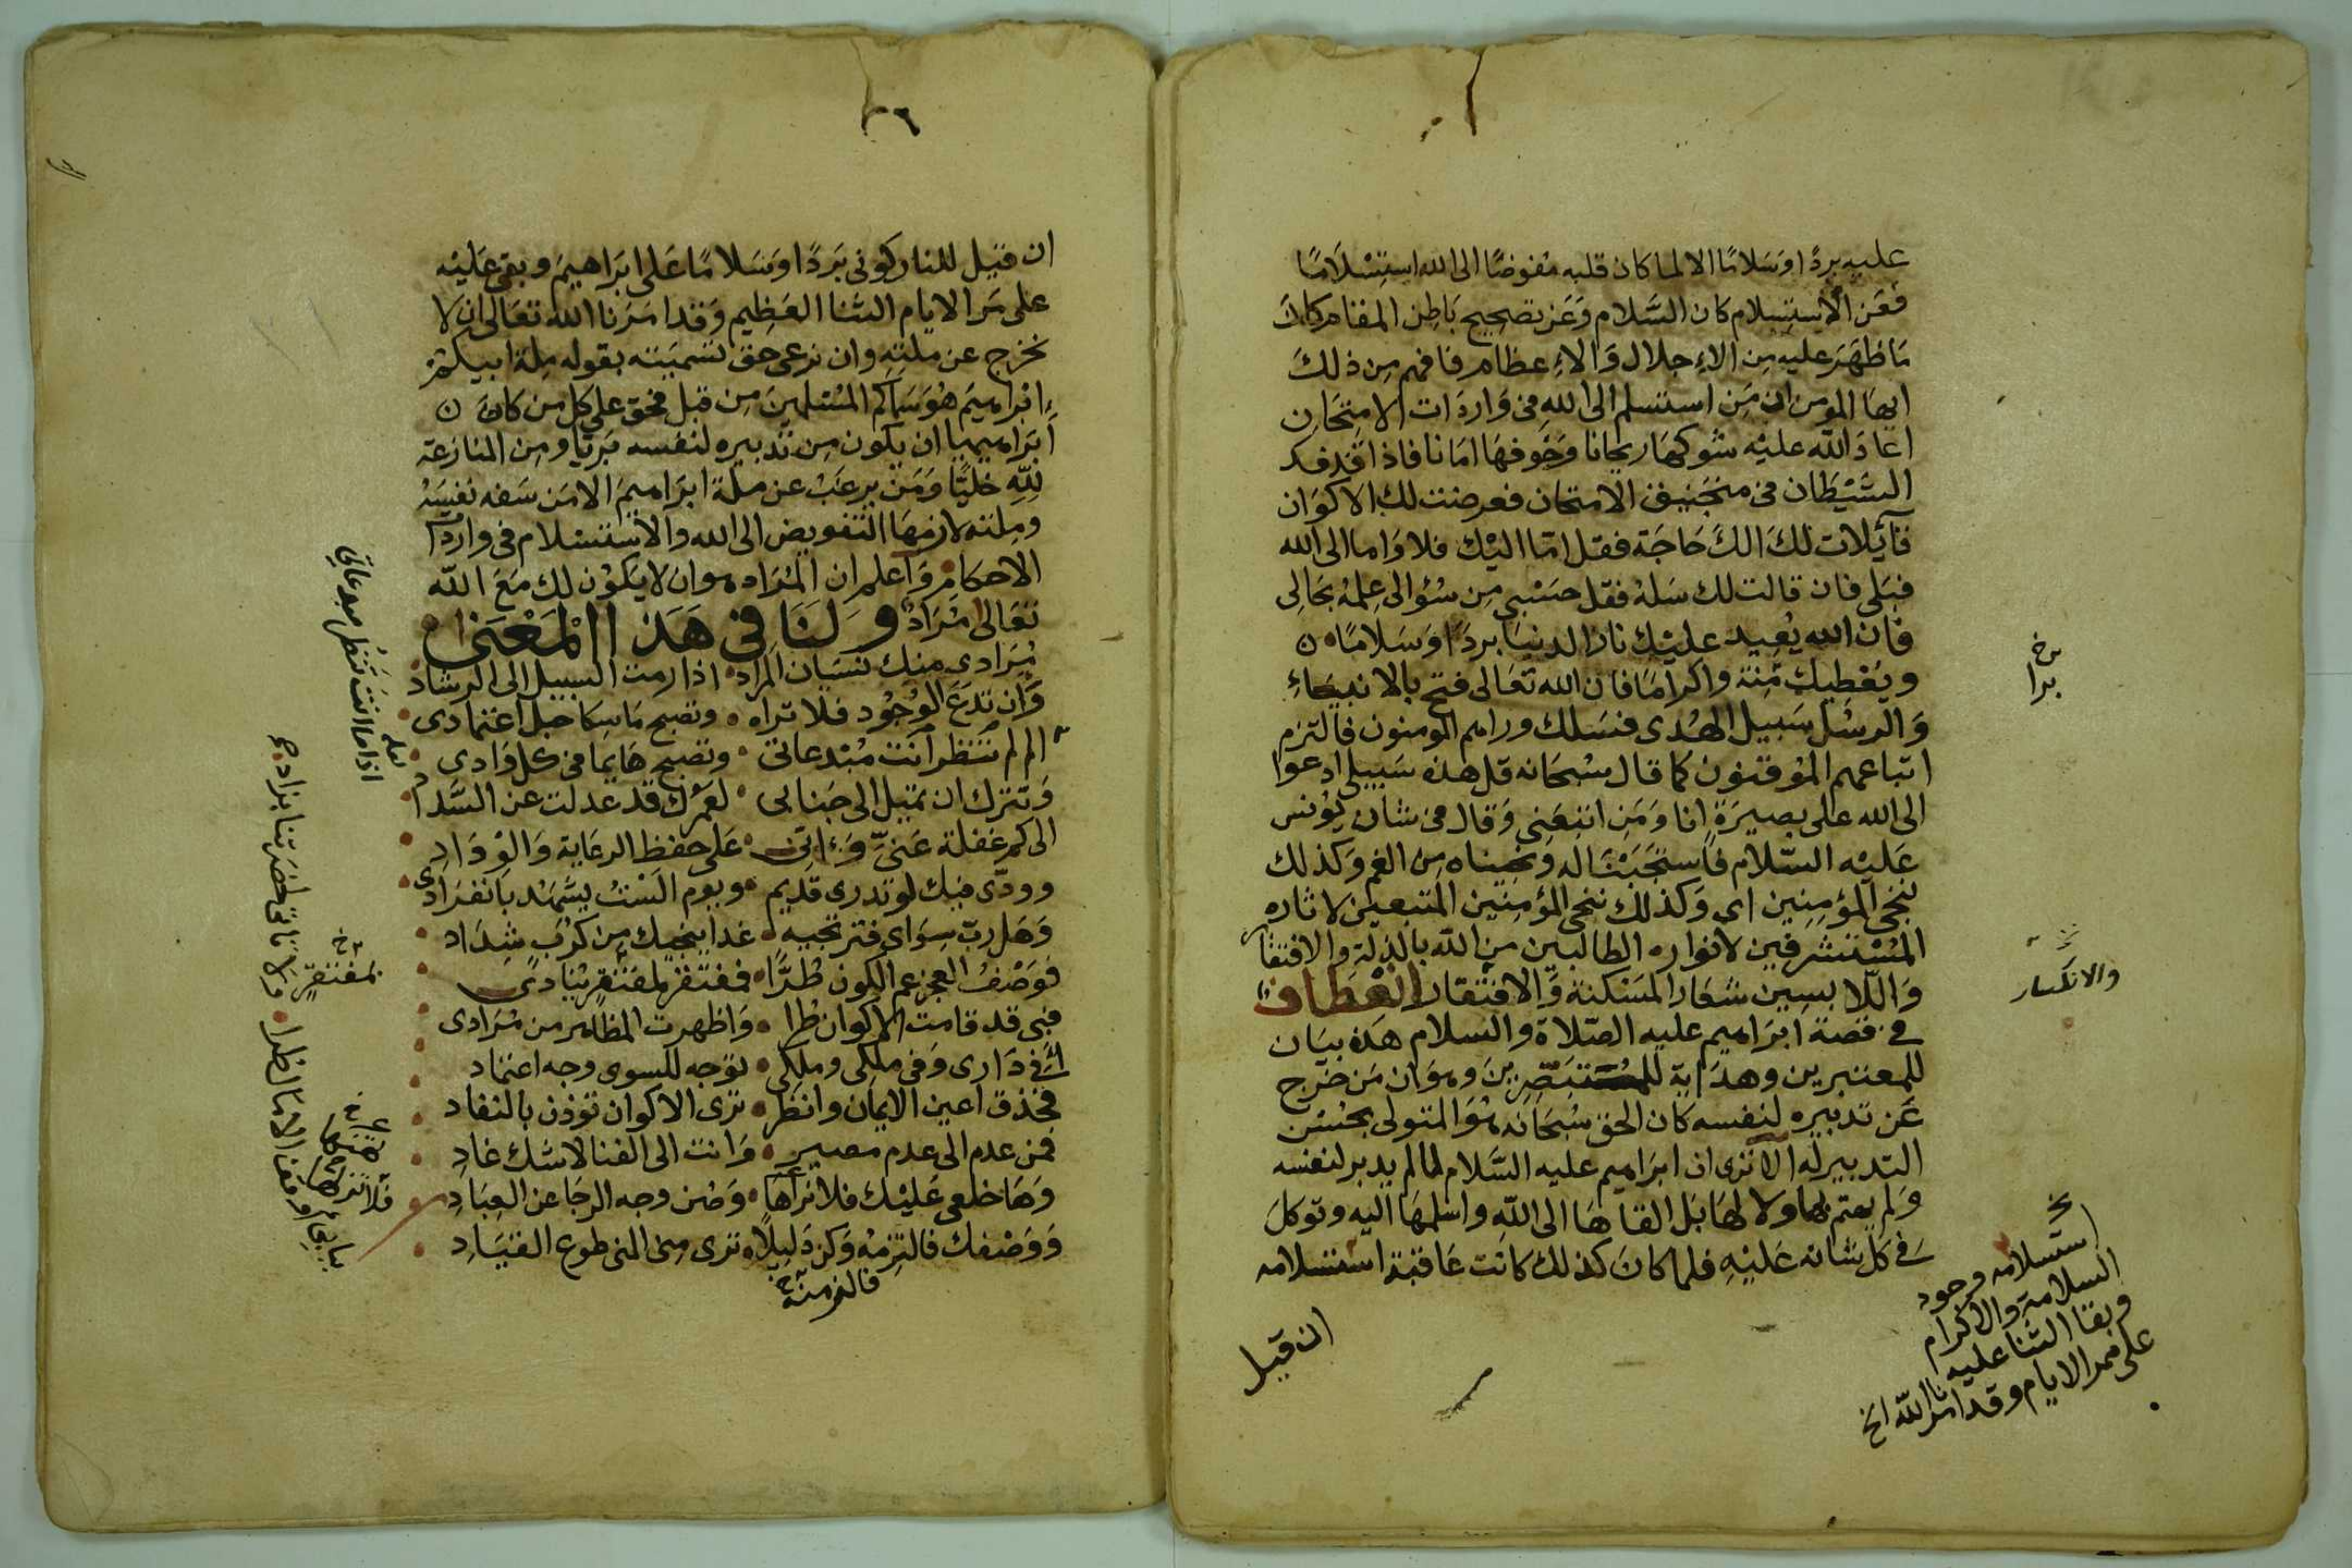 عليه بردا وسلاما الا لما كان قلبه مفوضا الى الله استسلاما
فعن الاستسلام كان السلام وعن تصحيح باطن المقام كان
ما ظهر عليه من الاجلال والاعظام فافهم من ذلك
ايها المومن ان من استسلم الى الله في واردات الامتحان
اعاد الله عليه شوكها ريحانا وخوفها امانا فاذا قذفك
الشيطان في منجنيق الامتحان فعرضت لك الاكوان
قائلات لك الك حاجة فقل اما اليك فلا واما الى الله
فبلى فان قالت لك سله فقل حسبي من سؤالى علمه بحالى
فان الله يعيد عليك نار الدنيا بردا وسلاما ن
ويعطيك منة واكراما فان الله تعالى فتح بالانبياء
والرسل سبيل الهدى فسلك وراهم المومنون فالتزم
اتباعهم الموقنون كما قال سبحانه قل هذه سبيلى ادعوا
الى الله على بصيرة انا ومن اتبعني وقال في شان يونس
عليه السلام فاستجبنا له ونجيناه من الغم وكذلك
ننجي المؤمنين اى وكذلك ننجي المؤمنين المتبعين لاثاره
المستشرفين لانواره الطالبين من الله بالذلة والافتقار
واللابسين شعار المسكنة والافتقار انعطاف
في قصة ابراهيم عليه الصلاة والسلام هذه بيان
للمعتبرين وهداية للمستبصرين وهو ان من خرج
عن تدبيره لنفسه كان الحق سبحانه هو المتولى بحسن
التدبير له الا ترى ان ابراهيم عليه السلام لما لم يدبر لنفسه
ولم يهتم بها ولا لها بل القاها الى الله واسلمها اليه وتوكل
في كل شانه عليه فلما كان كذلك كانت عاقبة استسلامه
ان قيل
والانكسار
استسلامه وجود
السلامة والاكرام
وبقا الثنا عليه
على ممر الايام وقد امرنا الله الخ
٢٦
ان قيل للنار كونى بردا وسلاما على ابراهيم وبقى عليه
على مر الايام الثنا العظيم وقد امرنا الله تعالى ان لا
نخرج عن ملته وان نرعى حق تسميته بقوله ملة ابيكم
ابراهيم هو سماكم المسلمين من قبل فحق على كل من كان ن
ابراهيميا ان يكون من تدبيره لنفسه بريا ومن المنازعة
لله خليا ومن يرغب عن ملة ابراهيم الا من سفه نفسه
وملته لازمها التفويض الى الله والاستسلام في واردات
الاحكام واعلم ان المراد هو ان لا يكون لك مع الله
تعالى مراد ولنا في هذا المعنى
مرادى منك نسيان المراد اذا رمت السبيل الى الرشاد
وان تدع الوجود فلا تراه وتصبح ماسكا حبل اعتمادى
الم لم تنتظر انت مبتدعاتى وتصبح هايما في كل وادى
وتترك ان تميل الى جنابى لعمرك قد عدلت عن السداد
الى كم غفلة عنى وانى على حفظ الرعاية والوداد
وودى فيك لو تدرى قديم ويوم الست يشهد بانفرادى
وهل رب سواى فترتجيه غدا ينجيك من كرب شداد
فوصف العجز عم الكون طرا فمفتقر لمفتقر ينادى
فبى قد قامت الاكوان طرا واظهرت المظاهر من مرادى
افي دارى وفي ملكى وملكى توجه للسوى وجه اعتماد
فحذق اعين الايمان وانظر ترى الاكوان توذن بالنفاد
فمن عدم الى عدم مصير وانت الى الفنا لا شك غاد
وها خلعى عليك فلا تراها وصن وجه الرجا عن العباد
ووصفك فالتزمه وكن ذليلا ترى منى المنى طوع القياد
بمفتقر